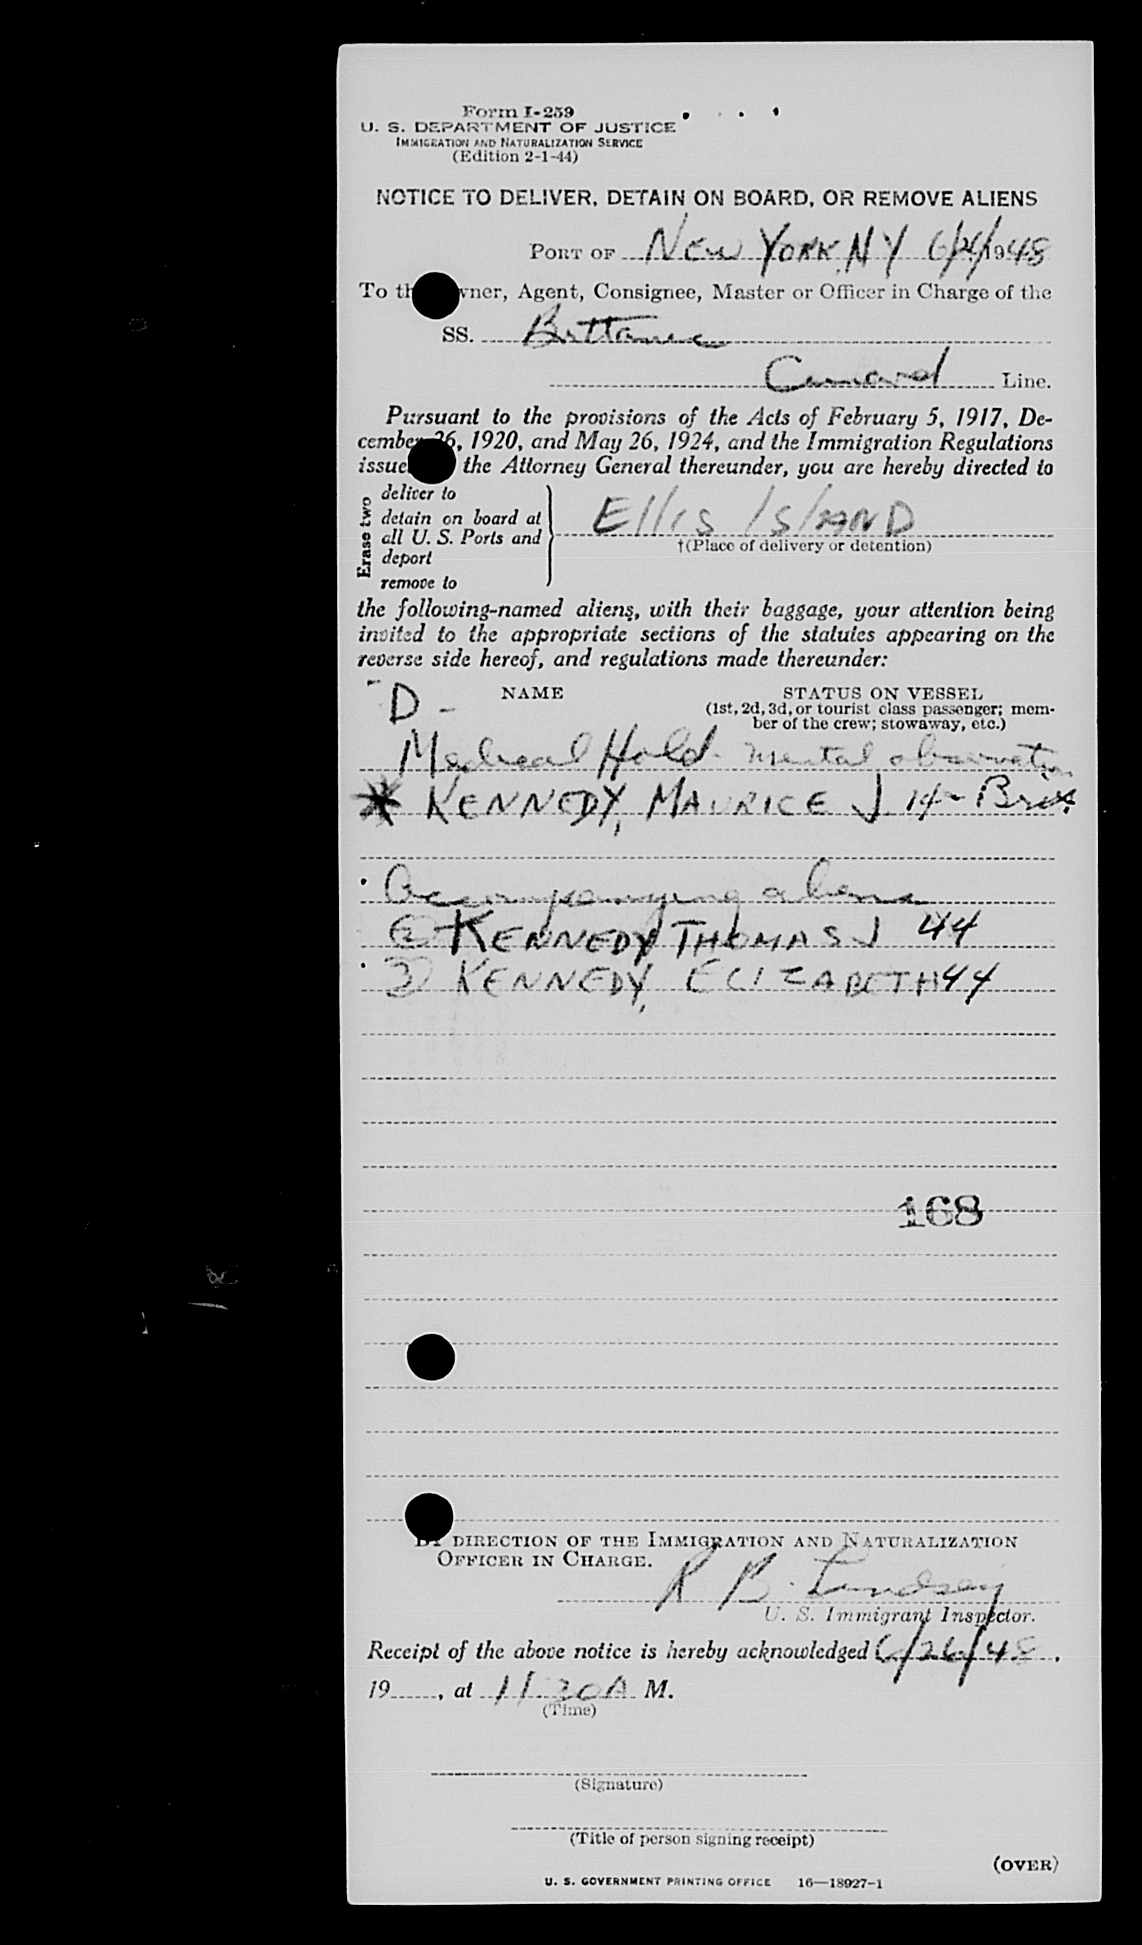 Form I-259
U. S. DEPARTMENT OF JUSTICE
IMMIGRATION AND NATURALIZATION SERVICE
(Edition 2-1-44)
NOTICE TO DELIVER, DETAIN ON BOARD, OR REMOVE ALIENS
PORT OF NEW YORK, NY 6/26/1948
To th wner, Agent, Consignee, Master or Officer in Charge of the
SS. Brittanic
Cunard Line.
Pursuant to the provisions of the Acts of February 5, 1917, De-
cember 26, 1920, and May 26, 1924, and the Immigration Regulations
issue the Attorney General thereunder, you are hereby directed to
Erase two
deliver to
detain on board at
all U. S. Ports and
deport
remove to
ELLIS ISLAND
†(Place of delivery or detention)
the following-named aliens, with their baggage, your attention being
invited to the appropriate sections of the statutes appearing on the
reverse side hereof, and regulations made thereunder:
D - NAME STATUS ON VESSEL
(1st, 2d, 3d, or tourist class passenger; mem-
ber of the crew; stowaway, etc.)
Medical Hold - mental observation
* KENNEDY, MAURICE J 14 - Brit
Accompanying aliens
2 KENNEDY, THOMAS J 44
3) KENNEDY, ELIZABETH 44
168
BY DIRECTION OF THE IMMIGRATION AND NATURALIZATION
OFFICER IN CHARGE.
R B. Lindsay
U. S. Immigrant Inspector.
Receipt of the above notice is hereby acknowledged 6/26/48.
19 , at 11 30 A M.
(Time)
(Signature)
(Title of person signing receipt)
(OVER)
U. S. GOVERNMENT PRINTING OFFICE 16—18927-1